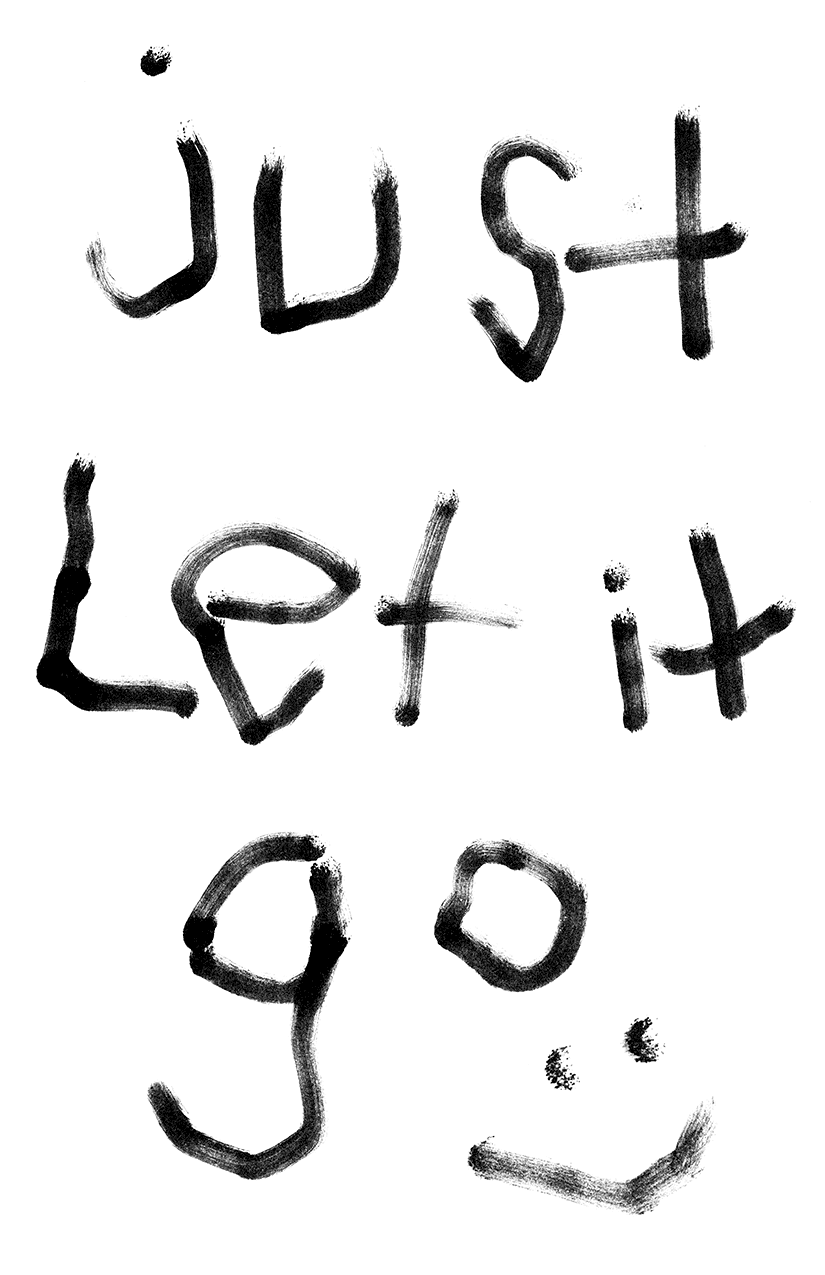 just
Let it
go